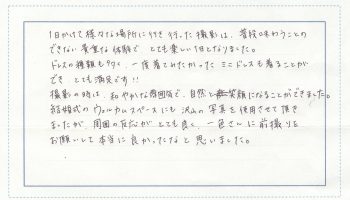 1日かけて様々な場所に行き行った撮影は、普段味わうことの
できない貴重な体験で とても楽しい1日となりました。
ドレスの種類も多く、一度着てみたかった ミニドレスも着ることが
でき とても満足です!!
撮影の時は、和やかな雰囲気で、自然と笑顔になることができました。
結婚式のウェルカムスペースにも 沢山の写真を使用させて頂き
ましたが、周囲の反応が とても良く、一色さんに前撮りを
お願いして本当に良かったなと思いました。